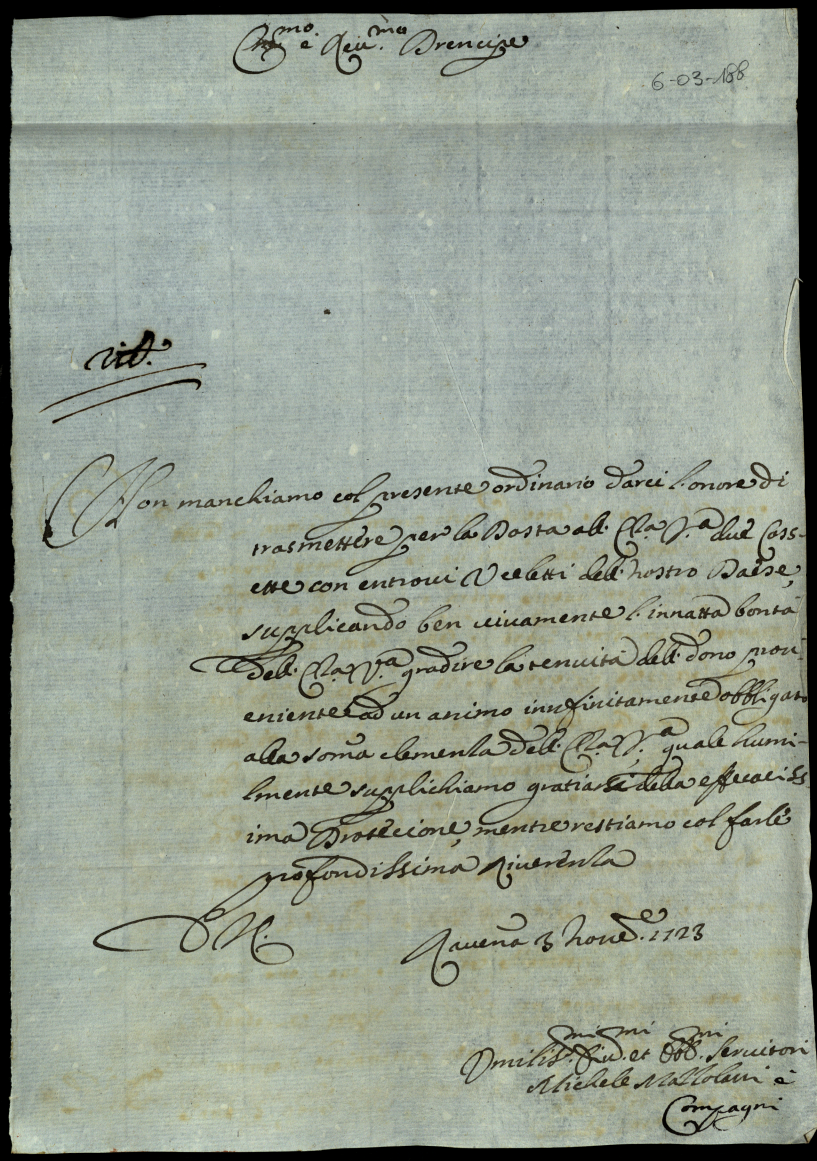 Em̅mo. e Reu.mo Prencipe
6-03-188
Non manchiamo col presente ordinario darci l'onore di
trasmettere per la Posta all' Em.a V.a due Cass-
ette con entroui Vcelletti dell' nostro Paese,
supplicando ben uiuamente l'innatta bontà
dell' Em.a V.a gradire la tenuità dell' dono prou-
eniente ad un animo innfinitamente obbligato
alla som̅a clemenza dell' Em.a V.a quale humi-
lmente supplichiamo gratiarci della efficaciss-
ima Protecione, mentre restiamo col farle
profondissima Riuerenza
Rauen̅a 3 Noue.e 1723
Vmiliss.mi Diu.mi et Obb.mi Seruitori
Michele e
Compagni